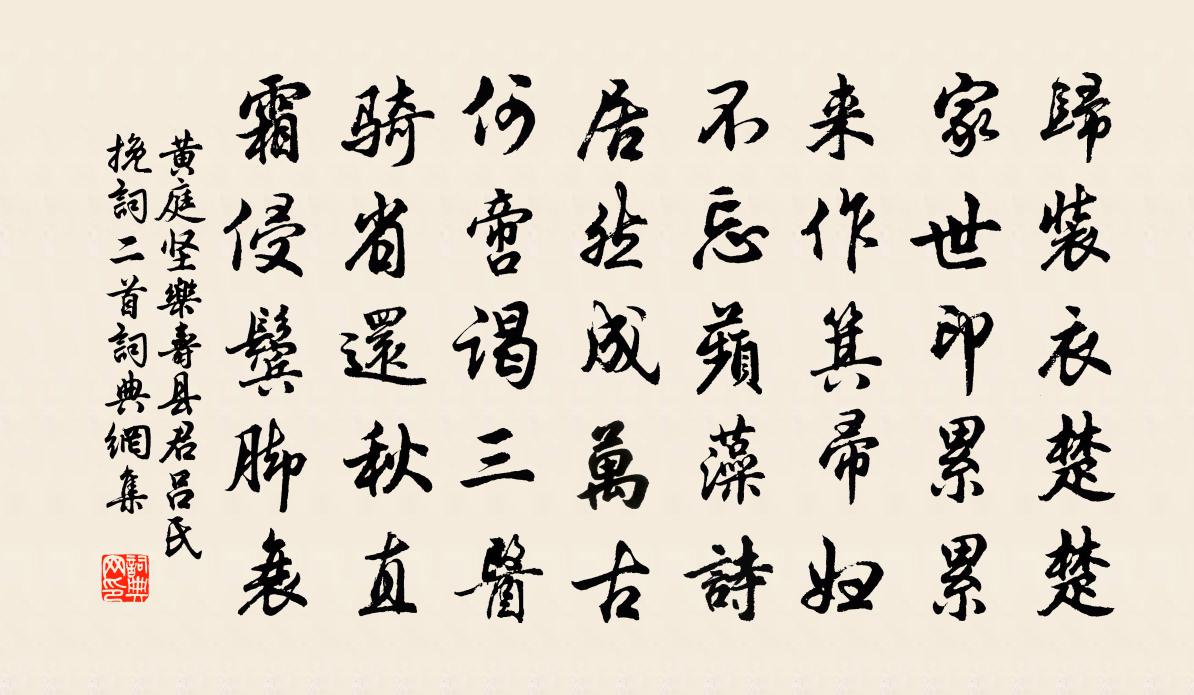 歸裝衣楚楚
家世印累累
来作箕帚妇
不忘蘋藻詩
居然成萬古
何啻謁三醫
骑省還秋直
霜侵鬓脚衰
黄庭坚樂壽县君呂氏
挽詞二首詞典網集
詞典网印